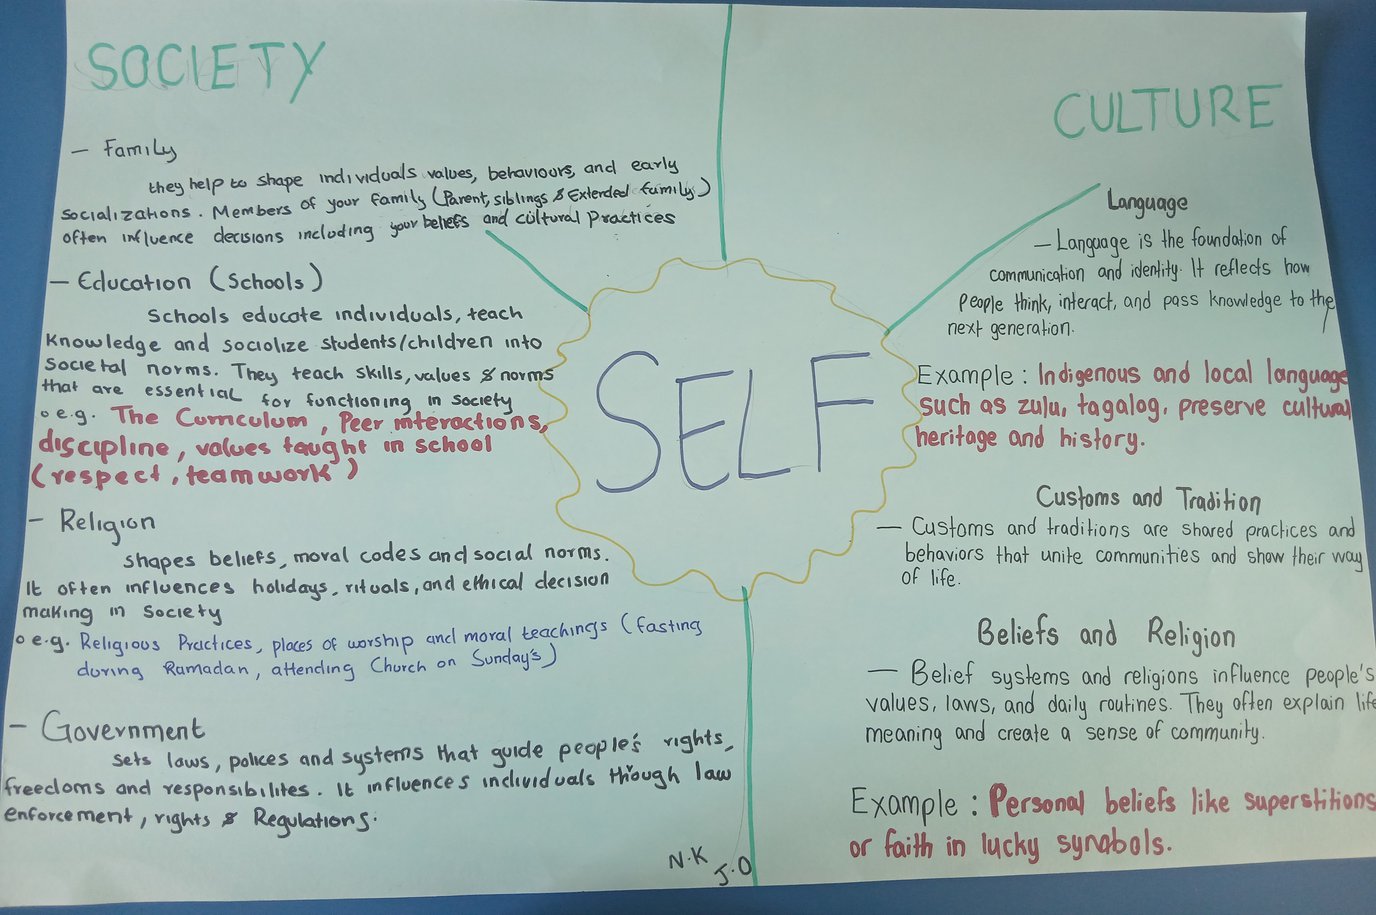 SOCIETY
- Family
they help to shape individuals values, behaviours, and early
socializations. Members of your family (Parent, siblings & Extended family)
often influence decisions including your beliefs and cultural practices
- Education (Schools)
Schools educate individuals, teach
knowledge and sociolize students/children into
societal norms. They teach skills, values & norms
that are essential for functioning in society
o e.g. The Curriculum, Peer interactions,
discipline, values taught in school
(respect, teamwork)
- Religion
shapes beliefs, moral codes and social norms.
It often influences holidays, rituals, and ethical decision
making in society
o e.g. Religious Practices, places of worship and moral teachings (fasting
during Ramadan, attending Church on Sunday's)
- Government
sets laws, polices and systems that guide people's rights,
freedoms and responsibilites. It influences individuals through law
enforcement, rights & Regulations.
SELF
CULTURE
Language
- Language is the foundation of
communication and identity. It reflects how
people think, interact, and pass knowledge to the
next generation.
Example: Indigenous and local language
such as zulu, tagalog, preserve cultural
heritage and history.
Customs and Tradition
- Customs and traditions are shared practices and
behaviors that unite communities and show their way
of life.
Beliefs and Religion
- Belief systems and religions influence people's
values, laws, and daily routines. They often explain life
meaning and create a sense of community.
Example: Personal beliefs like superstitions
or faith in lucky symbols.
N.K
J.O